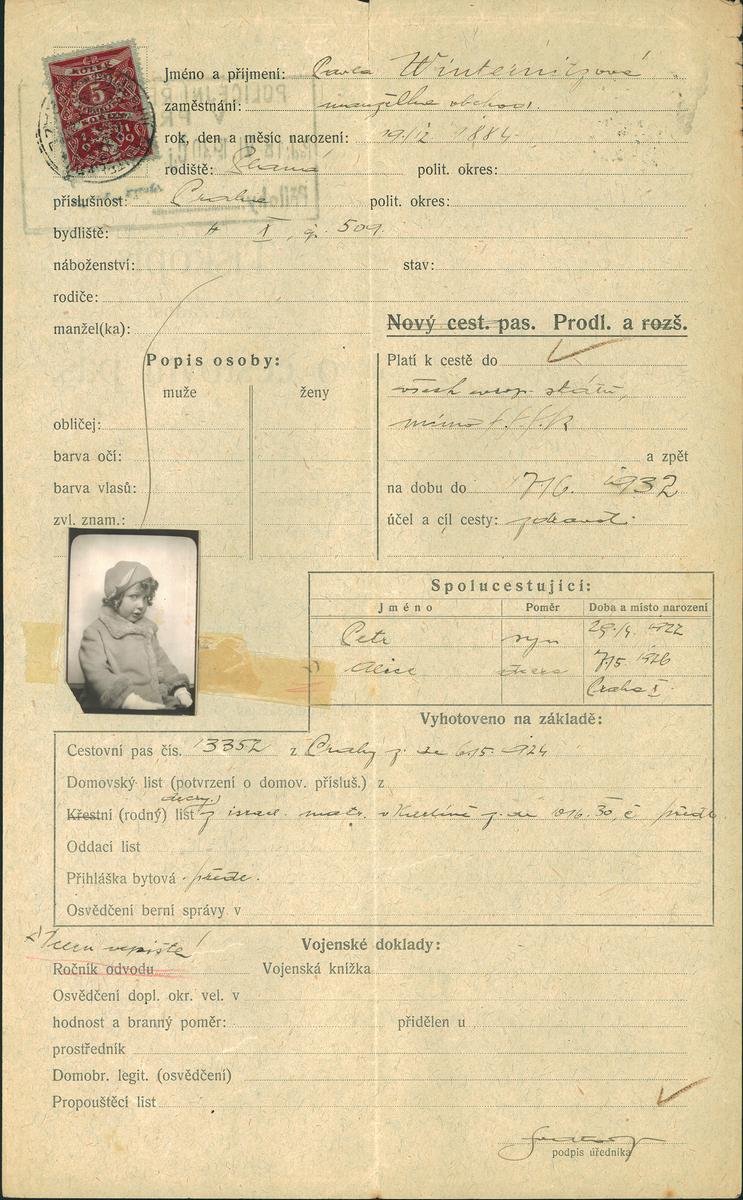 ČR
KOLEK
5
KORUN
Jméno a příjmení: Pavla Winternitzová
zaměstnání: manželka obchod.
rok, den a měsíc narození: 19/12 1884
rodiště: polit. okres:
příslušnost: Praha polit. okres:
bydliště: I, č. 509.
náboženství: stav:
rodiče:
manžel(ka):
Nový cest. pas. Prodl. a rozš.
Popis osoby:
muže ženy
obličej:
barva očí:
barva vlasů:
zvl. znam.:
Platí k cestě do
všech evrop. států,
mimo S.S.S.R
a zpět
na dobu do 17/6. 1932
účel a cíl cesty: zdravot.
Spolucestující:
Jméno Poměr Doba a místo narození
Petr syn 29./4. 1922
Alice dcera 7/5. 1926
Praha I.
Vyhotoveno na základě:
Cestovní pas čís. 13352 z Prahy z. de 6/5. 1924
Domovský list (potvrzení o domov. přísluš.) z
dcery)
Křestní (rodný) list z israel. matr. v Karlíně z. de 10/6. 30, č předl.
Oddací list
Přihláška bytová předl.
Osvědčení berní správy v
Dceru vepište!
Vojenské doklady:
Ročník odvodu Vojenská knížka
Osvědčení dopl. okr. vel. v
hodnost a branný poměr: přidělen u
prostředník
Domobr. legit. (osvědčení)
Propouštěcí list
podpis úředníka